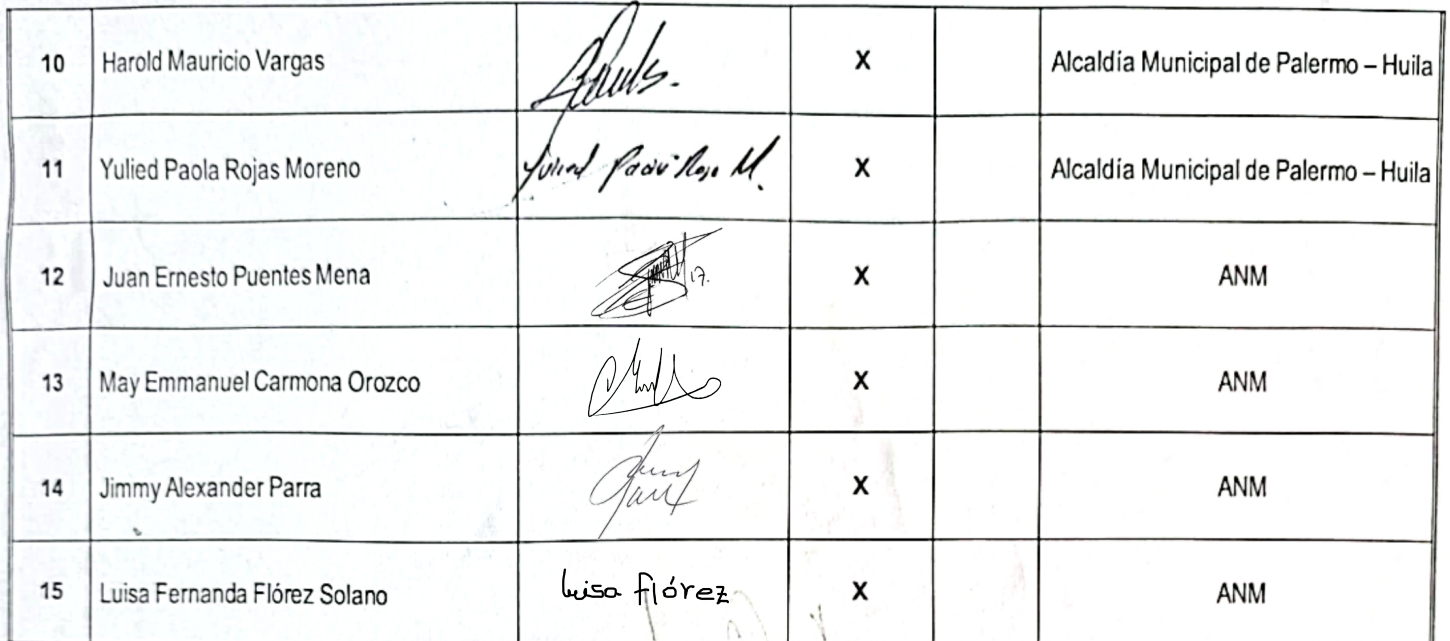 10 Harold Mauricio Vargas X Alcaldía Municipal de Palermo – Huila
11 Yulied Paola Rojas Moreno Yulied Paola Rojas M. X Alcaldía Municipal de Palermo – Huila
12 Juan Ernesto Puentes Mena 17. X ANM
13 May Emmanuel Carmona Orozco X ANM
14 Jimmy Alexander Parra X ANM
15 Luisa Fernanda Flórez Solano Luisa Flórez X ANM